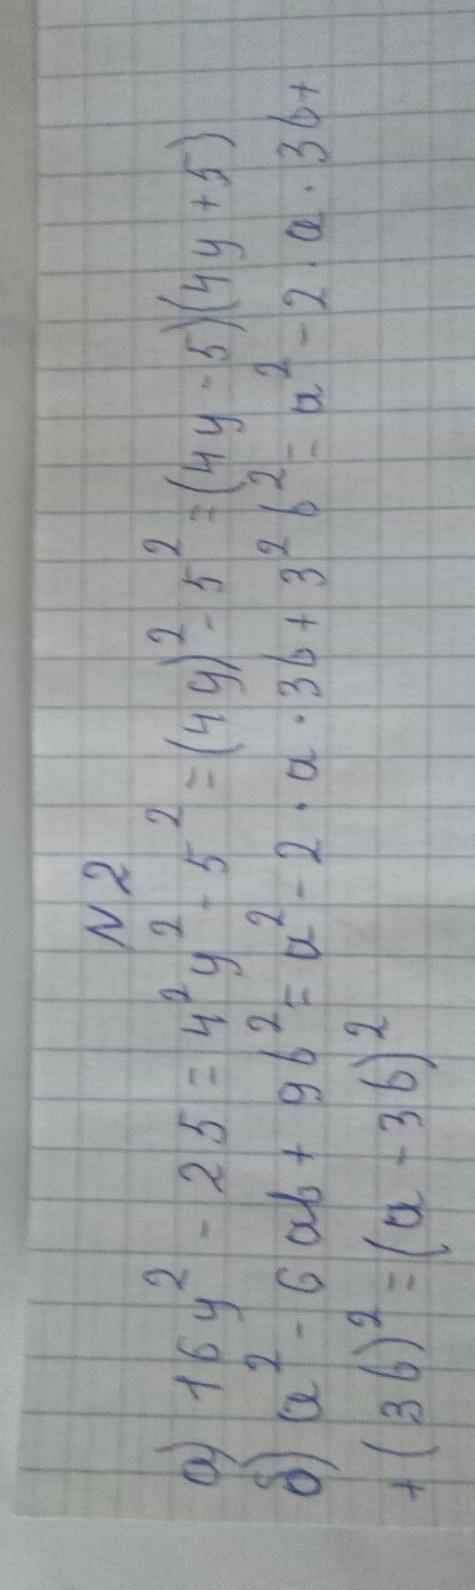 N 2
а) 16y² - 25 = 4²y² - 5² = (4y)² - 5² = (4y - 5)(4y + 5)
б) a² - 6ab + 9b² = a² - 2 · a · 3b + 3²b² = a² - 2 · a · 3b +
+ (3b)² = (a - 3b)²